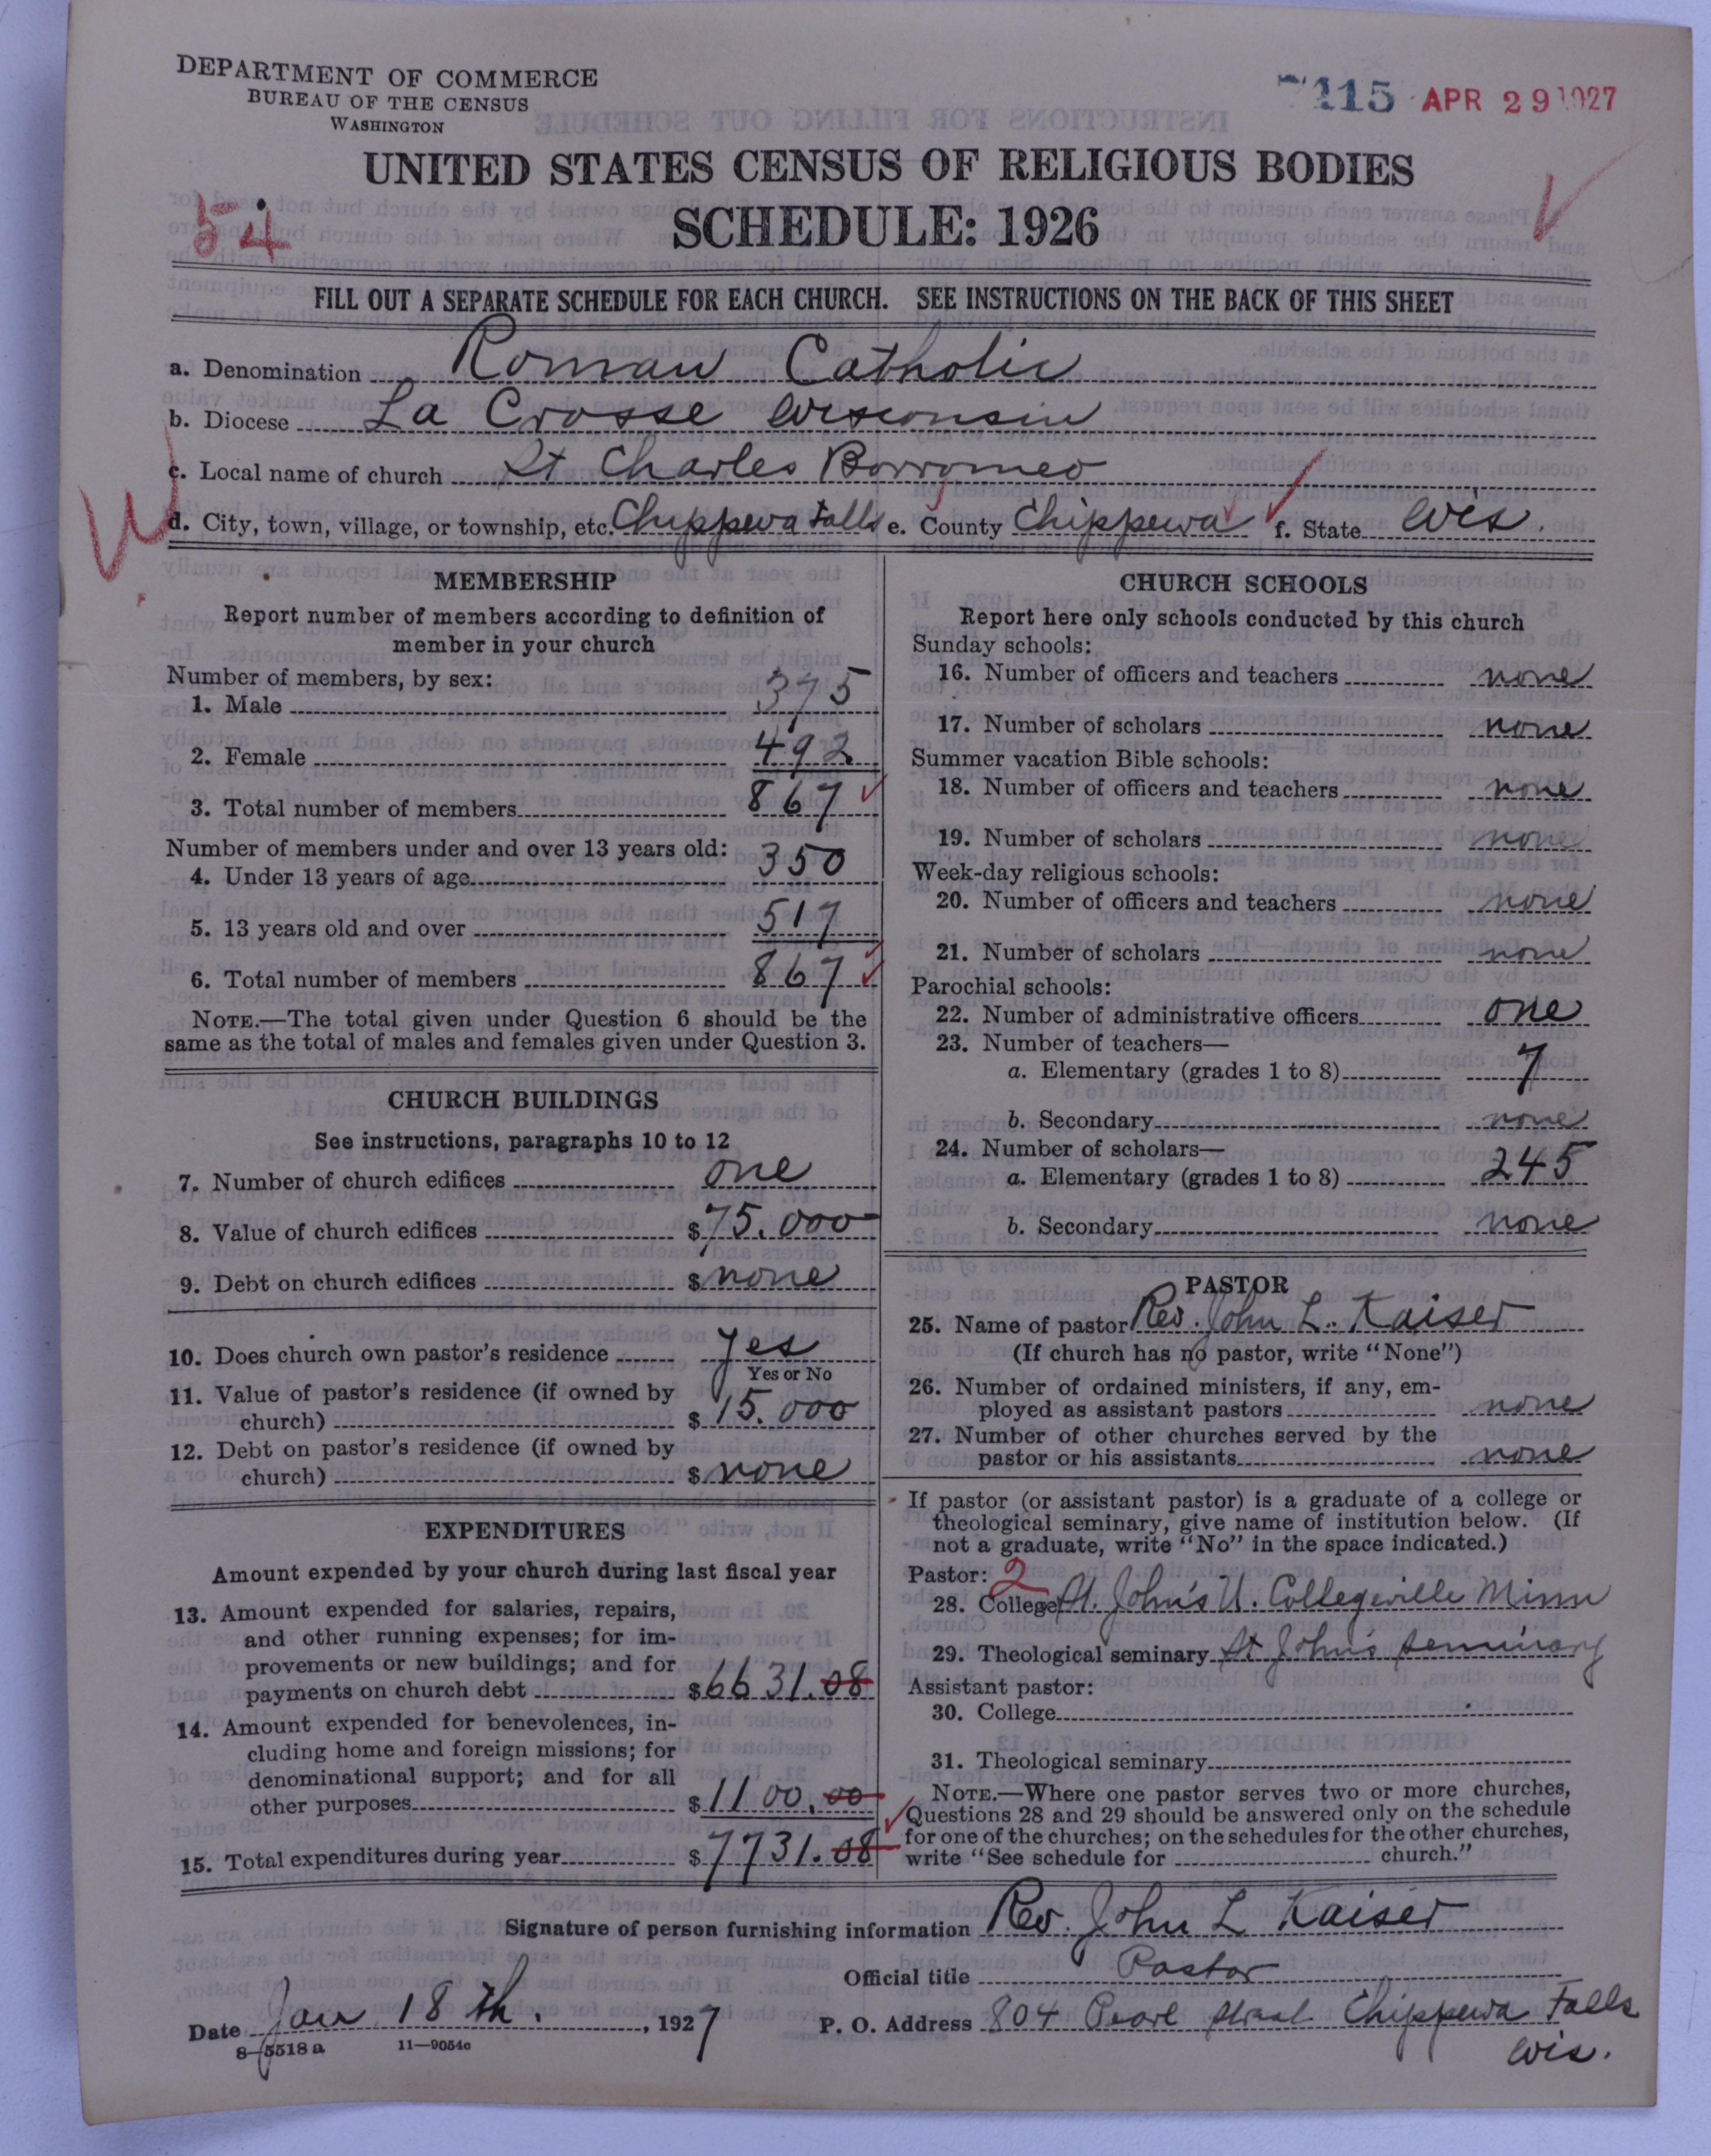 DEPARTMENT OF COMMERCE
BUREAU OF THE CENSUS
WASHINGTON
115 APR 29 1927
UNITED STATES CENSUS OF RELIGIOUS BODIES
54
SCHEDULE: 1926
FILL OUT A SEPARATE SCHEDULE FOR EACH CHURCH. SEE INSTRUCTIONS ON THE BACK OF THIS SHEET
a. Denomination Roman Catholic
b. Diocese La Crosse Wisconsin
c. Local name of church St Charles Borromeo
d. City, town, village, or township, etc. Chippewa Falls e. County Chippewa f. State Wis.
MEMBERSHIP
Report number of members according to definition of
member in your church
Number of members, by sex:
1. Male 375
2. Female 492
3. Total number of members 867
Number of members under and over 13 years old:
4. Under 13 years of age 350
5. 13 years old and over 517
6. Total number of members 867
NOTE.—The total given under Question 6 should be the
same as the total of males and females given under Question 3.
CHURCH BUILDINGS
See instructions, paragraphs 10 to 12
7. Number of church edifices one
8. Value of church edifices $75.000
9. Debt on church edifices $ none
10. Does church own pastor's residence Yes
Yes or No
11. Value of pastor's residence (if owned by
church) $ 15.000
12. Debt on pastor's residence (if owned by
church) $ none
EXPENDITURES
Amount expended by your church during last fiscal year
13. Amount expended for salaries, repairs,
and other running expenses; for im-
provements or new buildings; and for
payments on church debt $6631.08
14. Amount expended for benevolences, in-
cluding home and foreign missions; for
denominational support; and for all
other purposes $1100.00
15. Total expenditures during year $7731.08
CHURCH SCHOOLS
Report here only schools conducted by this church
Sunday schools:
16. Number of officers and teachers none
17. Number of scholars none
Summer vacation Bible schools:
18. Number of officers and teachers none
19. Number of scholars none
Week-day religious schools:
20. Number of officers and teachers none
21. Number of scholars none
Parochial schools:
22. Number of administrative officers one
23. Number of teachers—
a. Elementary (grades 1 to 8) 7
b. Secondary none
24. Number of scholars—
a. Elementary (grades 1 to 8) 245
b. Secondary none
PASTOR
25. Name of pastor Rev. John L. Kaiser
(If church has no pastor, write "None")
26. Number of ordained ministers, if any, em-
ployed as assistant pastors none
27. Number of other churches served by the
pastor or his assistants none
If pastor (or assistant pastor) is a graduate of a college or
theological seminary, give name of institution below. (If
not a graduate, write "No" in the space indicated.)
Pastor: 2
28. College St. John's U. Collegeville Minn
29. Theological seminary St John's seminary
Assistant pastor:
30. College
31. Theological seminary
NOTE.—Where one pastor serves two or more churches,
Questions 28 and 29 should be answered only on the schedule
for one of the churches; on the schedules for the other churches,
write "See schedule for church."
Signature of person furnishing information Rev. John L Kaiser
Official title Pastor
Date Jan 18th., 1927 P. O. Address 804 Pearl Street Chippewa Falls
Wis.
8—5518a 11—9054c